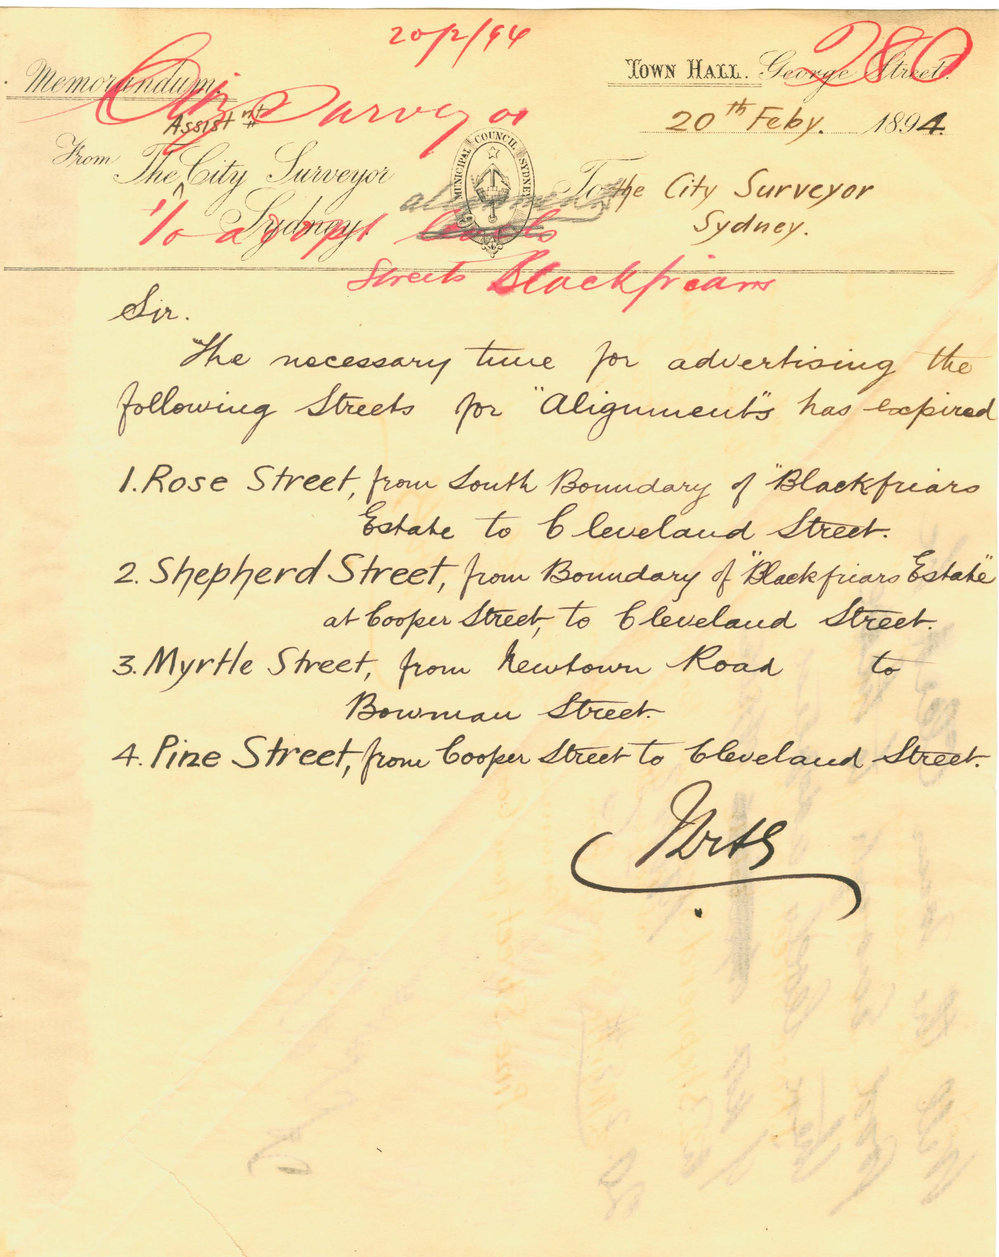 20/2/94
280
Memorandum.
TOWN HALL. George Street.
City Surveyor
20th Feby. 1894.
Assistnt
From The City Surveyor
Sydney.
MUNICIPAL COUNCIL SYDNEY
To the City Surveyor
Sydney.
To adopt alignments
Streets Blackfriars
Sir.
The necessary time for advertising the
following Streets for "Alignment"s has expired
1. Rose Street, from South Boundary of "Blackfriars
Estate to Cleveland Street.
2. Shepherd Street, from Boundary of "Blackfriars Estate"
at Cooper Street, to Cleveland Street.
3. Myrtle Street, from Newtown Road to
Bowman Street.
4. Pine Street, from Cooper Street to Cleveland Street.